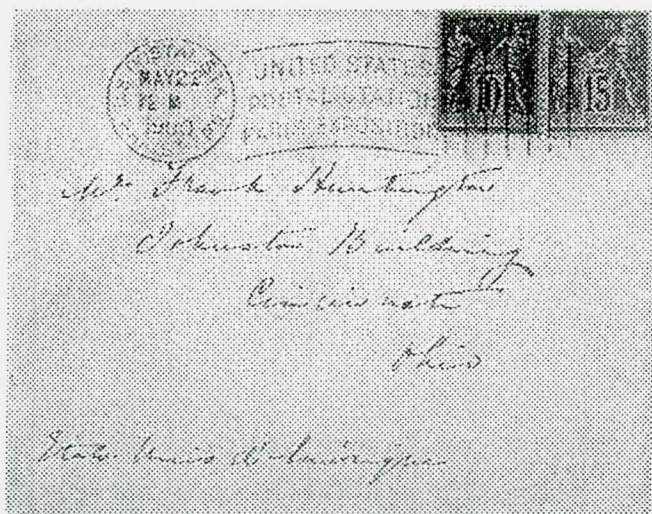 MAY 22
1900
UNITED STATES
POSTAL STATION
PARIS EXPOSITION
10
15
Mr. Frank Huntington
Johnston Building
Cincinnati
Ohio
Etats Unis d'Amérique